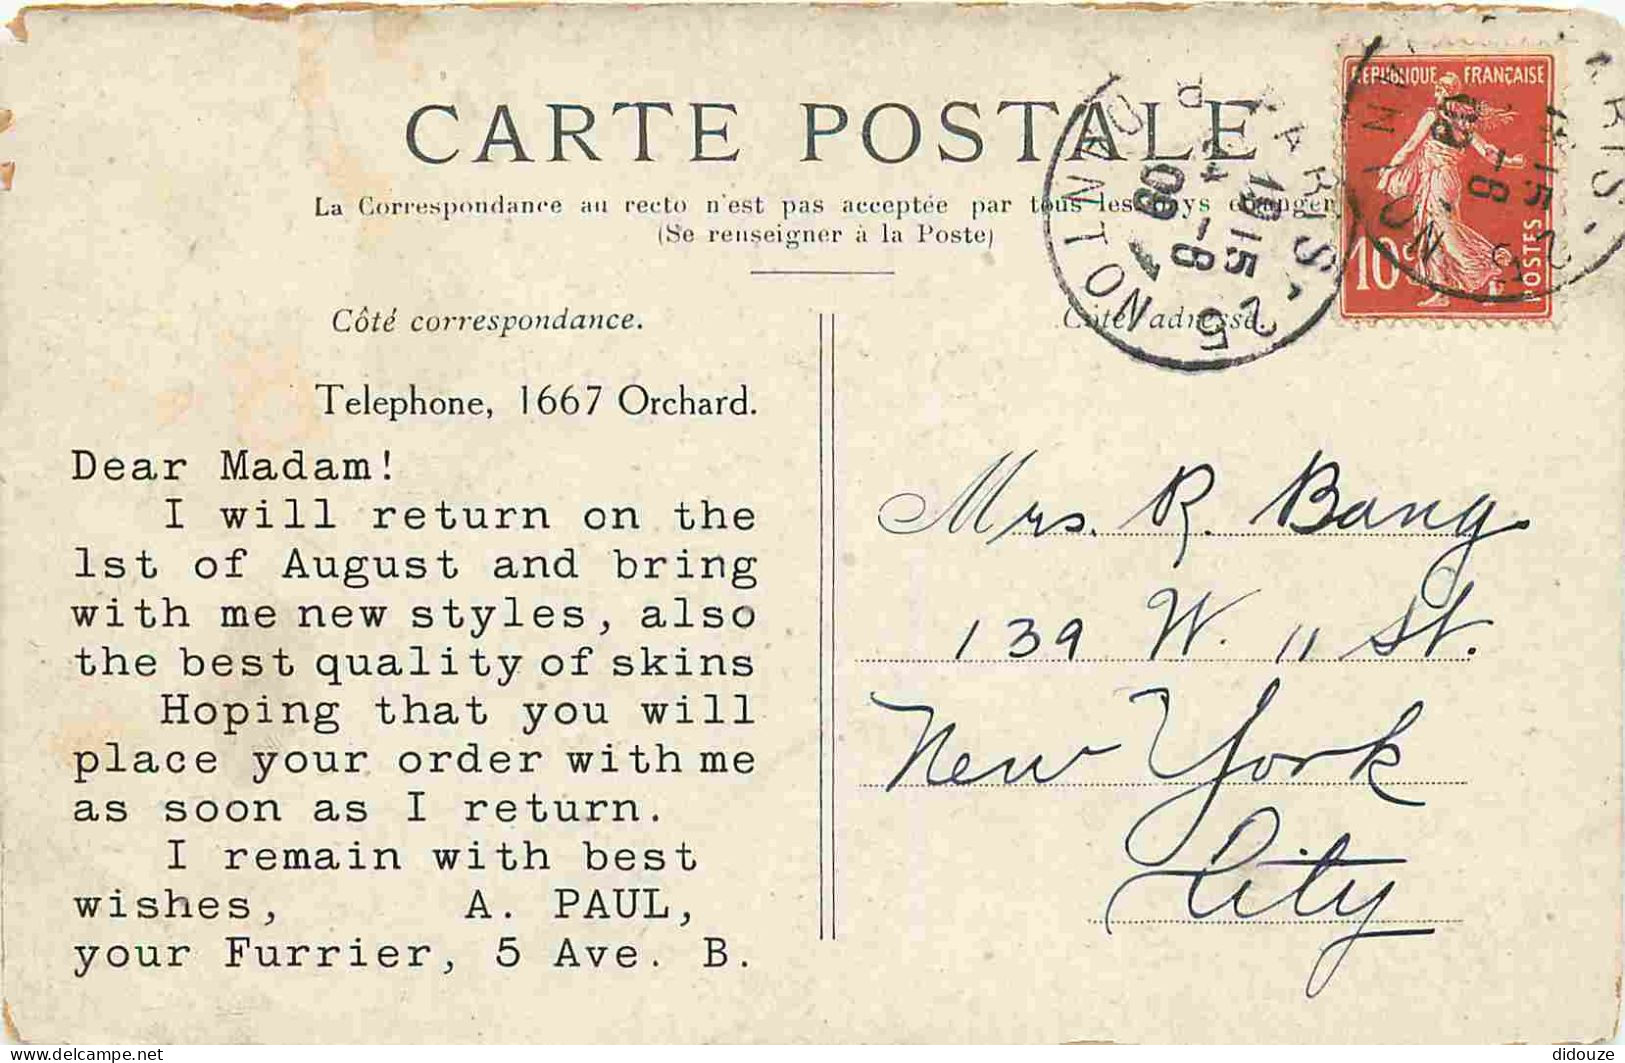 CARTE POSTALE
La Correspondance au recto n'est pas acceptée par tous les pays étrangers
(Se renseigner à la Poste)
REPUBLIQUE FRANÇAISE
10c
POSTES
PARIS
Côté correspondance.
Côté adresse.
Telephone, 1667 Orchard.
Dear Madam!
I will return on the
1st of August and bring
with me new styles, also
the best quality of skins
Hoping that you will
place your order with me
as soon as I return.
I remain with best
wishes, A. PAUL,
your Furrier, 5 Ave. B.
Mrs. R. Bang
139 W. 11 St.
New York
City
delcampe.net
didouze